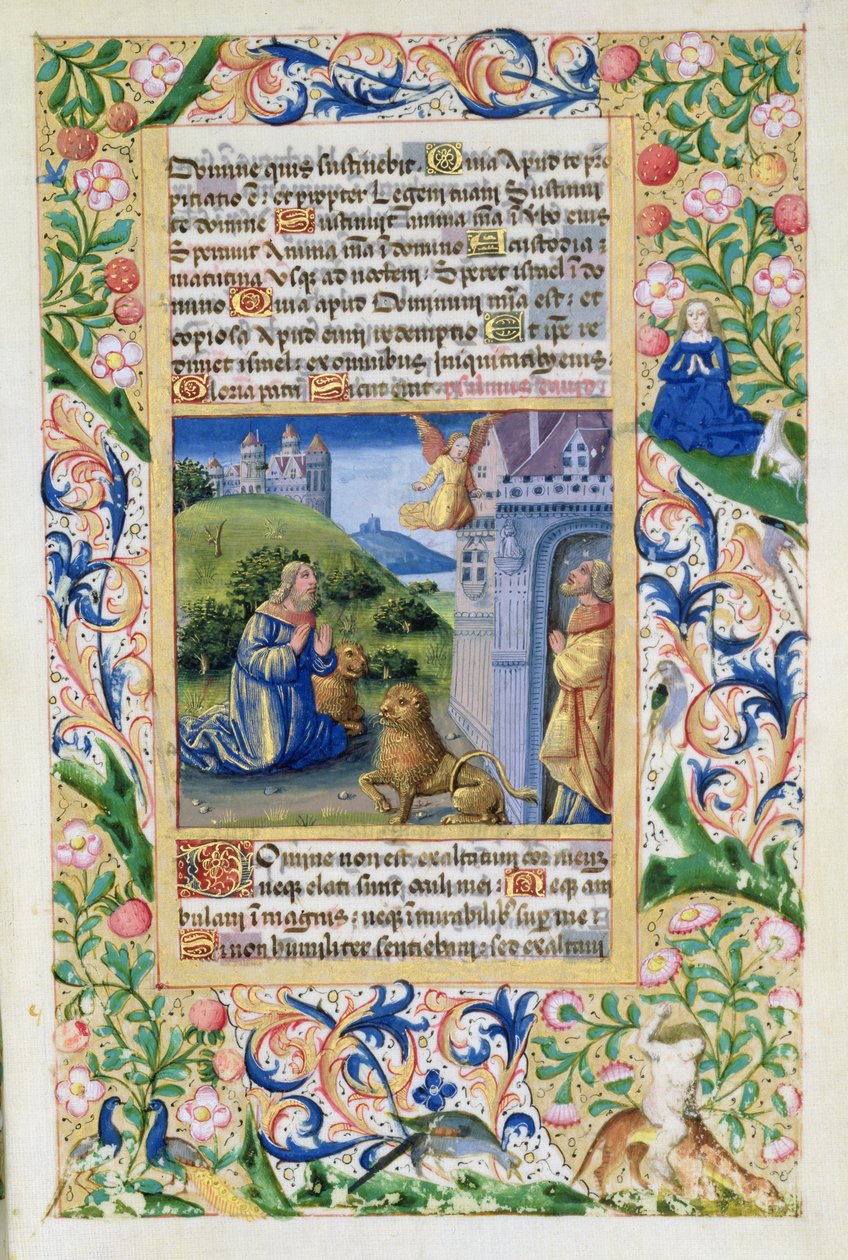 Domine quis sustinebit. Quia Apud te pro
pitiatio ē: et propter Legem tuam Sustinui
te domine Sustinuit anima mā ī v̄bo eius
Speravit Anima mā ī domino A custodia :
matutina Vsqꝫ ad noctem: Speret israel ī do
mino Quia apud Dominum mīa est: et
copiosa Apud eum redemptio Et ip̄e re
dimet israel: ex omnibus Iniquitatibꝫ eius.
Gloria patri Sicut erat. psalmus david:
Domine non est exaltatum cor meuꝫ
neqꝫ elati sunt oculi mei: Neqꝫ am
bulavi ī magnis: neqꝫ ī mirabilibꝰ sup̄ me:
Si non humiliter sentiebam: sed exaltavi